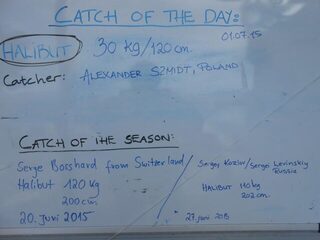 CATCH OF THE DAY:
01.07.15
HALIBUT 30 kg/120cm.
Catcher: ALEXANDER SZMIDT, POLAND
CATCH OF THE SEASON:
Serge Bosshard from Switzerland
Halibut 120 kg
200 cm
20. juni 2015
Sergey Kozlov/Sergei Levinskiy
Russia
HALIBUT 110 kg
202 cm.
27. juni 2015